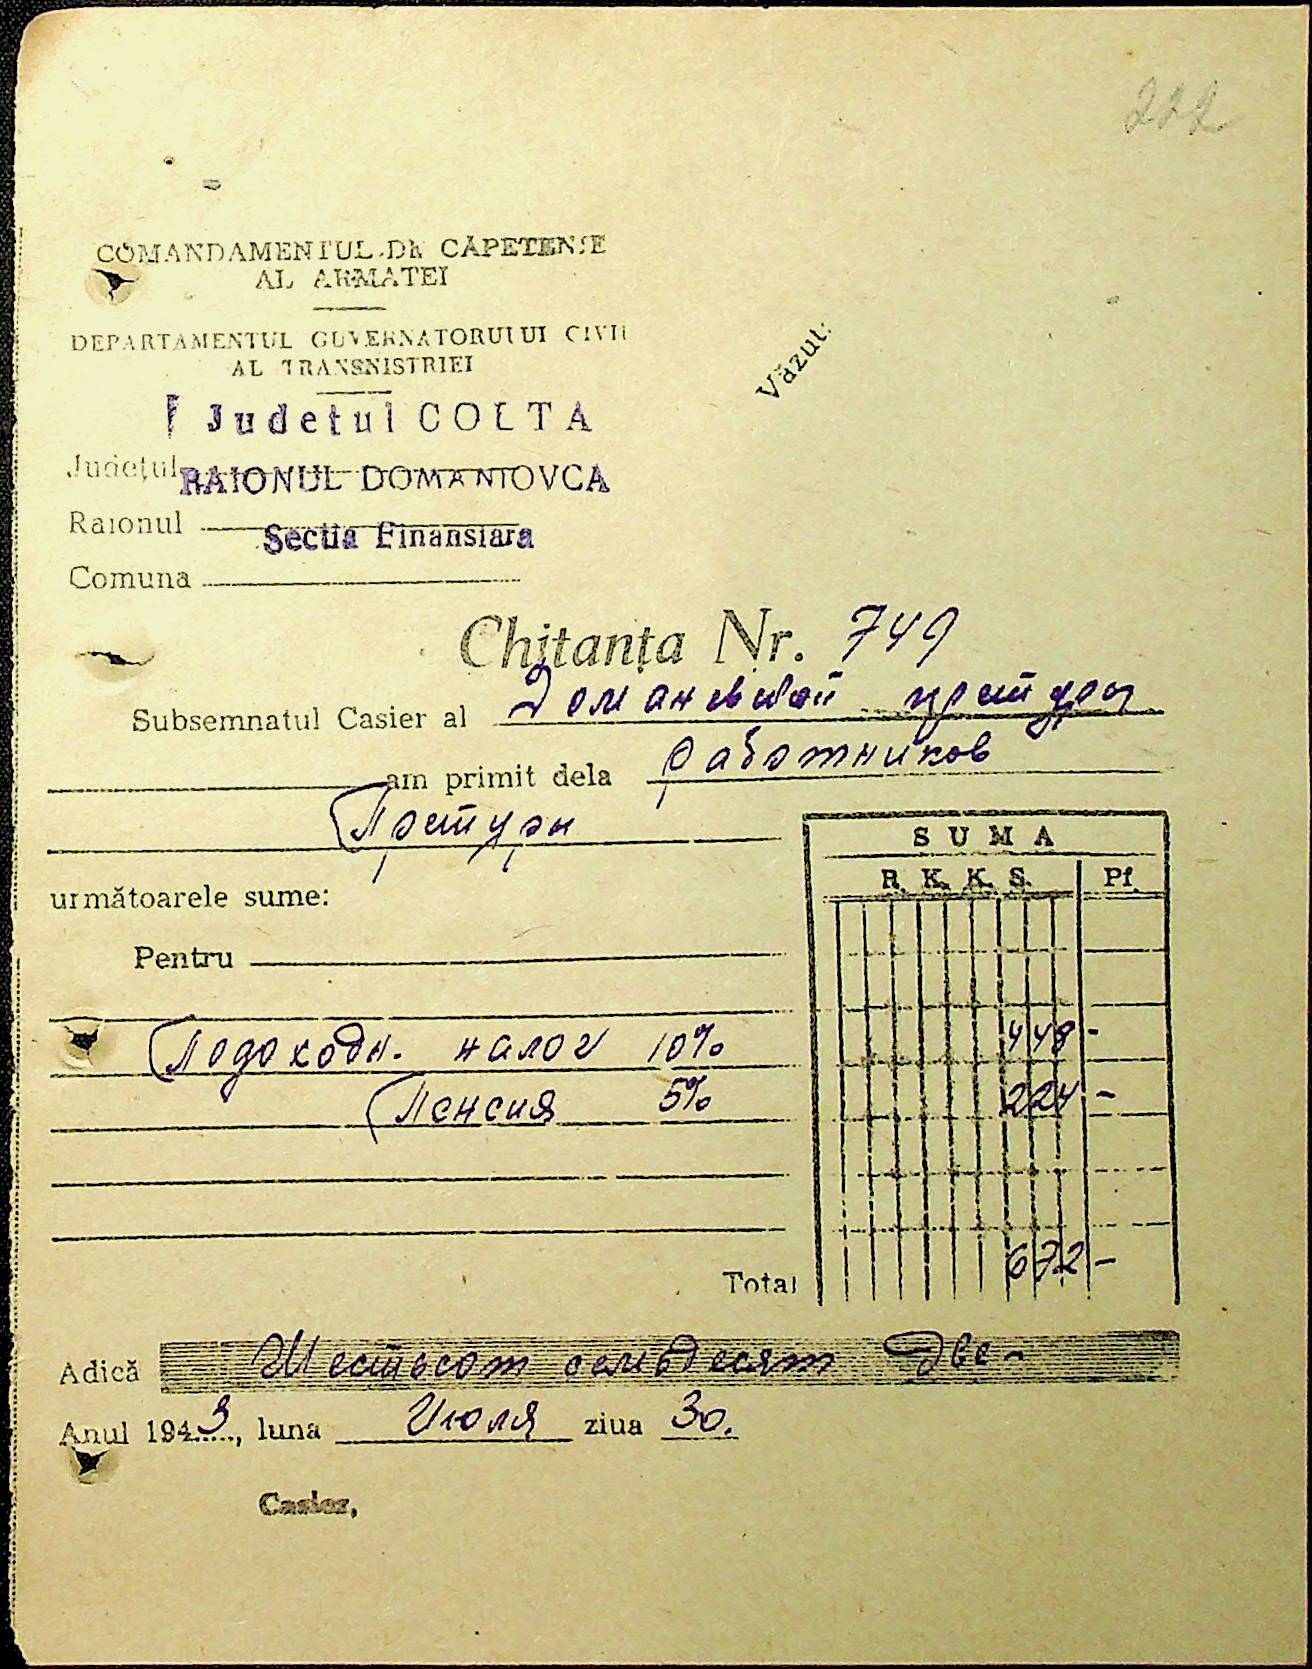 222
COMANDAMENTUL DE CĂPETENIE
AL ARMATEI
DEPARTAMENTUL GUVERNATORULUI CIVIL
AL TRANSNISTRIEI
Văzut:
Judetul COLTA
Județul RAIONUL DOMANIOVCA
Raionul
Sectia Finansiara
Comuna
Chitanța Nr. 749
Subsemnatul Casier al Доманевской претуры
am primit dela работников
Претуры
SUMA
R. K. K. S. Pf.
următoarele sume:
Pentru
Подоходн. налог 10% 448 -
Пенсия 5% 224 -
Total 672 -
Adică Шестьсот семьдесят две -
Anul 1943, luna Июля ziua 30.
Casier,